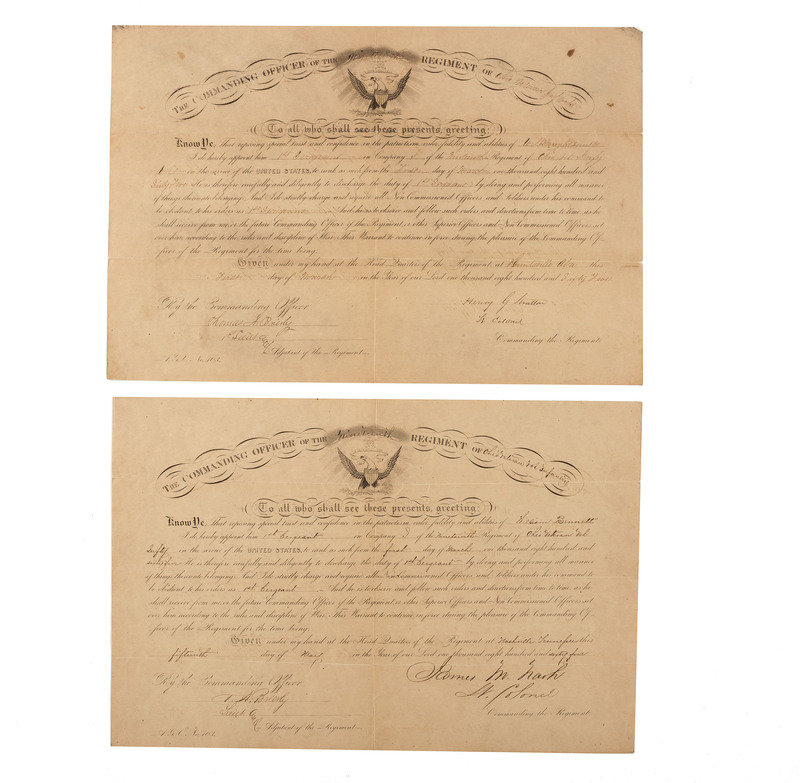 THE COMMANDING OFFICER OF THE REGIMENT OF
To all who shall see these presents, greeting:
Know Ye, That reposing special trust and confidence in the patriotism, valor, fidelity and abilities of
I do hereby appoint him 1st Sergeant in Company Regiment of
in the service of the UNITED STATES, to rank as such from the day of one thousand eight hundred and
He is therefore carefully and diligently to discharge the duty of 1st Sergeant by doing and performing all manner
of things thereunto belonging. And I do strictly charge and require all Non-Commissioned Officers and Soldiers under his command to
be obedient to his orders as 1st Sergeant And he is to observe and follow such orders and directions from time to time, as he
shall receive from me, or the future Commanding Officer of the Regiment, or other Superior Officers and Non-Commissioned Officers set
over him according to the rules and discipline of War. This Warrant to continue in force during the pleasure of the Commanding Of-
ficer of the Regiment for the time being.
Given under my hand at the Head Quarters of the Regiment, at Huntsville this
First day of in the Year of our Lord one thousand eight hundred and Sixty Four
By the Commanding Officer
Henry G. Stratton
Lt Colonel
Commanding the Regiment.
Adjutant of the Regiment
THE COMMANDING OFFICER OF THE Nineteenth REGIMENT OF Ohio Veteran Vol Infantry
To all who shall see these presents, greeting:
Know Ye, That reposing special trust and confidence in the patriotism, valor, fidelity and abilities of Bennett
I do hereby appoint him 1st Sergeant in Company of the Nineteenth Regiment of Ohio Veteran Vol
in the service of the UNITED STATES, to rank as such from the first day of March one thousand eight hundred and
He is therefore carefully and diligently to discharge the duty of 1st Sergeant by doing and performing all manner
of things thereunto belonging. And I do strictly charge and require all Non-Commissioned Officers and Soldiers under his command to
be obedient to his orders as 1st Sergeant And he is to observe and follow such orders and directions from time to time, as he
shall receive from me, or the future Commanding Officer of the Regiment, or other Superior Officers and Non-Commissioned Officers set
over him according to the rules and discipline of War. This Warrant to continue in force during the pleasure of the Commanding Of-
ficer of the Regiment for the time being.
Given under my hand at the Head Quarters of the Regiment, at Nashville Tennessee this
fifteenth day of May in the Year of our Lord one thousand eight hundred and sixty five
By the Commanding Officer
James M Nash
Lt. Colonel
Commanding the Regiment.
Adjutant of the Regiment